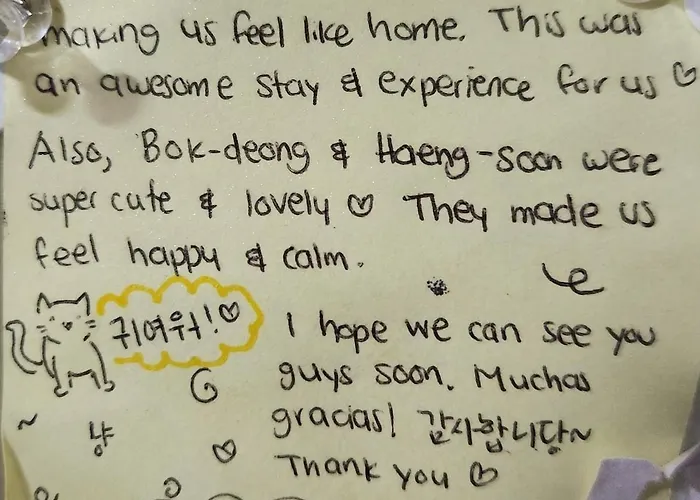 making us feel like home. This was
an awesome stay & experience for us ♡
Also, Bok-deong & Haeng-soon were
super cute & lovely ♡ They made us
feel happy & calm.
귀여워!♡
I hope we can see you
guys soon. Muchas
gracias! 감사합니당~
Thank you ♡
~
냥
♡